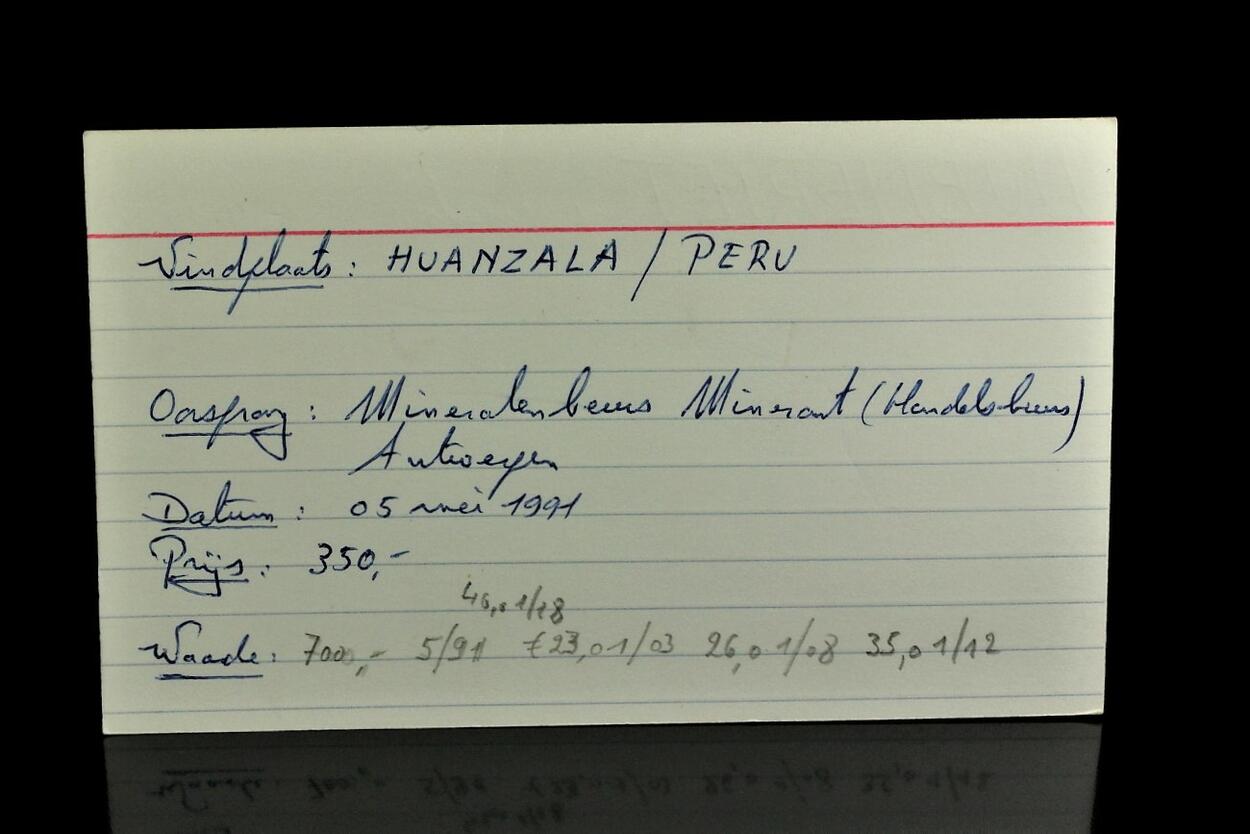 Vindplaats: HUANZALA / PERU
Oorsprong: Mineralenbeurs Minerant (Handelsbeurs)
Antwerpen
Datum: 05 mei 1991
Prijs: 350,-
46,0 1/18
Waarde: 700,- 5/91 €23,0 1/03 26,0 1/08 35,0 1/12